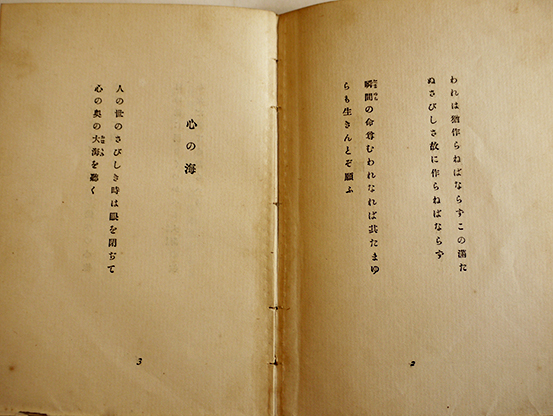 われは猶作らねばならずこの満た
ぬさびしさ故に作らねばならず
瞬間の命尊むわれなれば其たまゆ
らも生きんとぞ願ふ
2
心の海
人の世のさびしき時は眼を閉ぢて
心の奥の大海を聴く
3